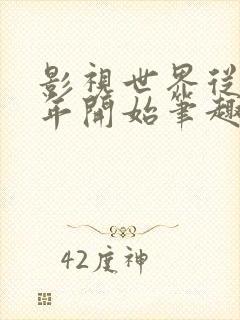 影視世界從
年開始筆趣
42度神